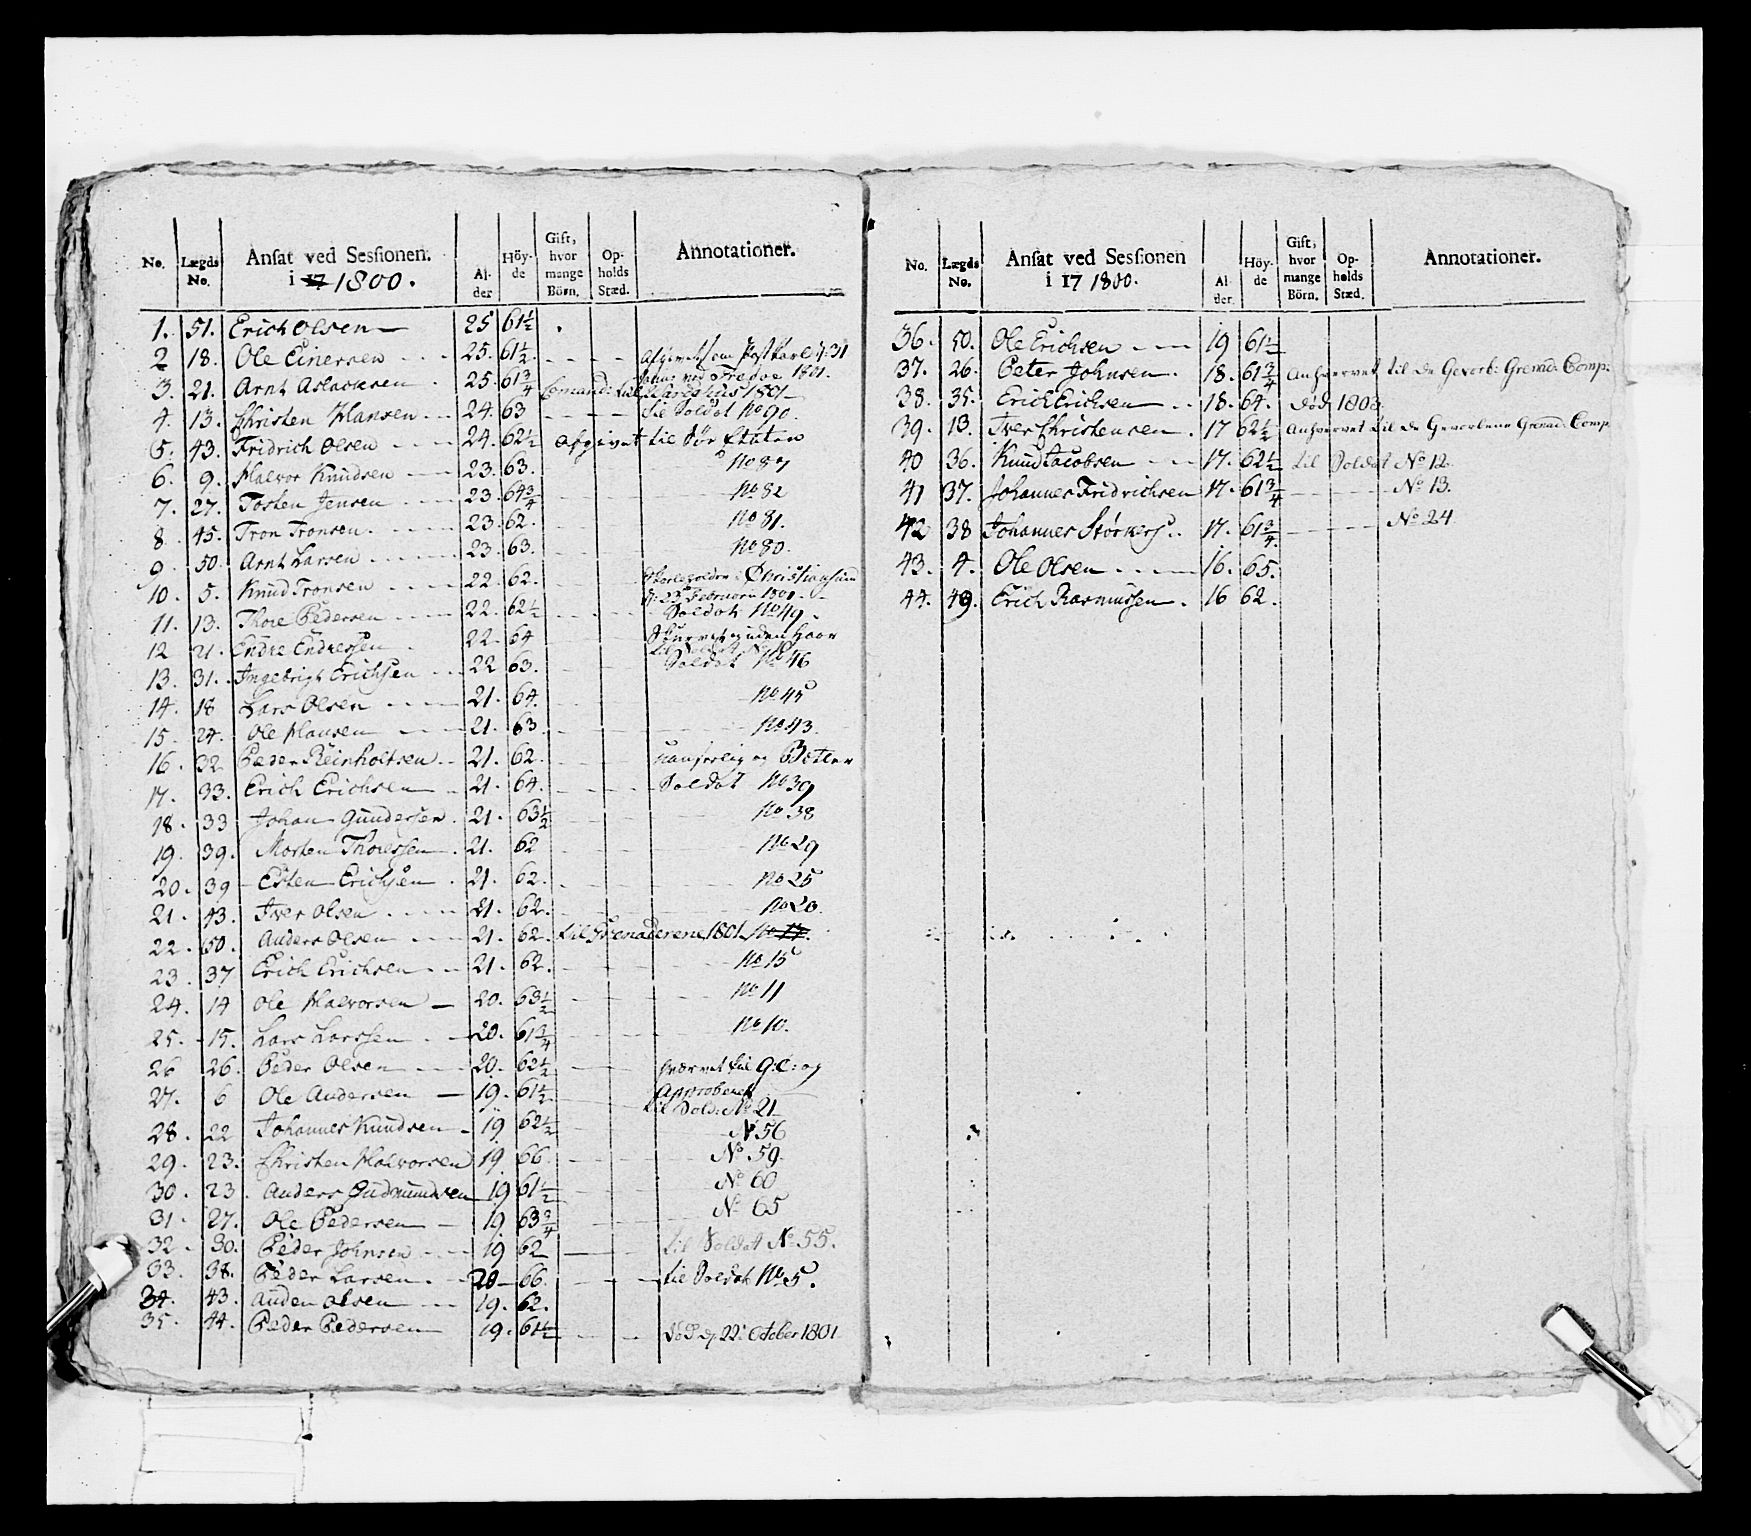 No. Lægds No. Ansat ved Sessionen. i 17 1800. Al- der Höy- de Gift, hvor mange Börn. Op- holds Stæd. Annotationer.
1. 51. Erich Olsen 25 61½
2 18. Ole Einersen 25. 61½
3. 21. Arnt Aslacksen 25. 61¾ Comand: til 1801
4. 13. Christen Hansen 24. 63 til Soldat No 90.
5. 43. Fridrich Olsen 24. 62½ afgivet til Söe Etaten
6. 9. Halvor Knudsen 23. 63. No 87
7. 27. Tosten Jensen 23. 64¾ No 82
8. 45. Tron Tronsen. 23. 62. No 81.
9. 50. Arnt Larsen 23. 63. No 80.
10. 5. Knud Tronsen 22. 62. Christiansund
d: 23 Februarii 1800.
11. 13. Thore Pedersen 22. 62½ Soldat No 49.
12 21. Endre Endresen 22. 64 Skurvet og uden Haar
13. 31. Ingebrigt Erichsen 22 63. Soldat No 46
14. 18 Lars Olsen 21. 64. No 45
15. 24. Ole Hansen 21. 63 No 43.
16. 32 Peder Reinholtsen 21. 62. vanförlig og Betler
17. 33. Erich Erichsen 21. 64. Soldat No 39
18. 33 Johan Gundersen. 21. 63½ No 38
19. 39. Morten Thoresen 21. 62 No 29
20. 39 Esten Erichsen 21. 62. No 25
21. 43. Iver Olsen 21. 62. No 20.
22. 50. Anders Olsen 21. 62. til Grenadererne 1801
23. 37 Erich Erichsen 21. 62. No 15
24. 14 Ole Halvorsen 20. 63½ No 11
25. 15. Lars Larsen 20. 61¾ No 10.
26 26. Peder Olsen 20. 62½ hværvet til G:C: og
27. 6 Ole Andersen 19. 61½ Approberet
til Sold: No 21
28. 22 Johannes Knudsen 19 62½ N. 56
29. 23. Christen Halvorsen 19 66. No. 59.
30. 23. Anders Gudmundsen 19 61½ No 60
31. 27. Ole Pedersen 19 63¾ No 65
32. 30. Peder Johnsen 19 62 til Soldat No 55.
33. 38. Peder Larsen. 20 66. til Soldat No 5.
34. 43. Auden Olsen 19. 62.
35. 44. Peder Pedersen 19. 61½ död d. 22 October 1801
No. Lægds No. Ansat ved Sessionen i 17 1800. Al- der. Höy- de Gift, hvor mange Börn. Op- holds Stæd. Annotationer.
36. 50. Ole Erichsen 19 61½
37. 26. Peter Johnsen. 18. 61¾ anhværvet til de Gevorb: Grenad: Comp:
38. 35. Erich Erichsen 18. 64. död 1803.
39. 13. Iver Christensen. 17 62½ anhværvet til de Gevorbene Grenad: Comp
40 36. Knud Jacobsen 17. 62½ til Soldat No 12.
41 37. Johannes Fridrichsen 17. 61¾ No 13.
42 38 Johannes Störkers. 17. 61¾ No 24
43. 4. Ole Olsen 16. 65.
44. 49. Erich Rasmussen. 16 62.